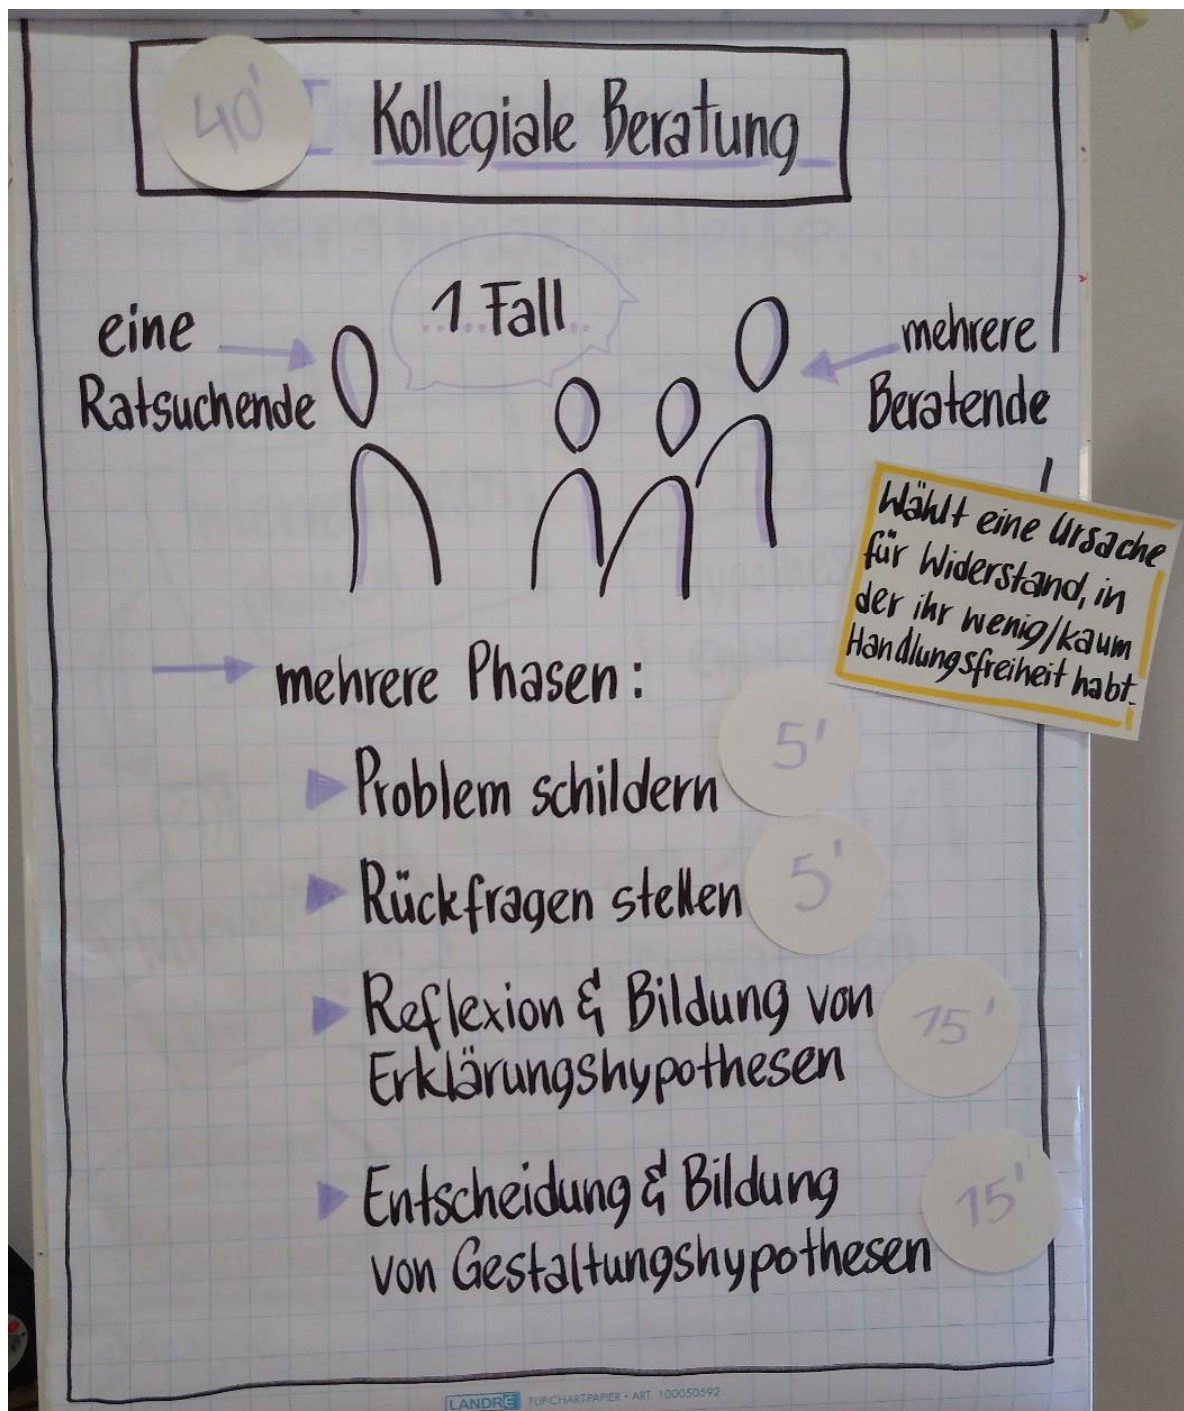 40'
Kollegiale Beratung
1 Fall
eine
Ratsuchende
mehrere
Beratende
Wählt eine Ursache
für Widerstand, in
der ihr wenig/kaum
Handlungsfreiheit habt.
mehrere Phasen:
Problem schildern
5'
Rückfragen stellen
5'
Reflexion & Bildung von
Erklärungshypothesen
15'
Entscheidung & Bildung
von Gestaltungshypothesen
15'
LANDRÉ FLIPCHART-PAPIER • ART. 100050592